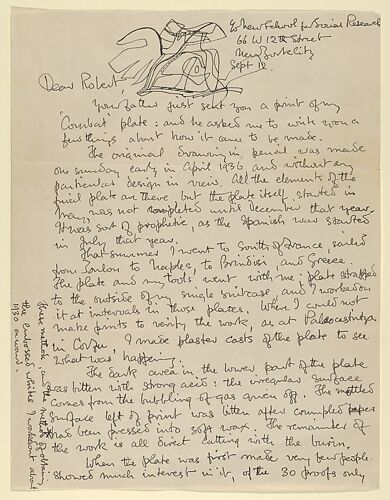 c/o New School for Social Research
66 W 12th Street
New York City
Sept 12.
Dear Robert,
Your father just sent you a print of my
Combat plate: and he asked me to write you a
few things about how it came to be made.
The original drawing in pencil was made
one Sunday early in April 1936 and without any
particular design in view. All the elements of the
final plate are there but the plate itself, started in
May, was not completed until December that year.
It was sort of prophetic, as the Spanish war started
in July that year.
That summer I went to South of France, sailed
from Toulon to Naples, to Brindisi and Greece.
The plate and my tools went with me: plate strapped
to the outside of my single suitcase and I worked on
it at intervals in those places. Where I could not
make prints to verify the work, as at Paleocastritsa
in Corfu I made plaster casts of the plate to see
what was happening.
The dark area in the lower part of the plate
was bitten with strong acid: the irregular surface
comes from the bubbling of gas given off. The mottled
surface left of print was bitten after crumpled paper
had been pressed into soft wax. The remainder of
the work is all direct cutting with the burin.
When the plate was first made very few people
showed much interest in it, of the 30 proofs only
These methods and the method of obtaining
the embossed whites I worked out about
1930 onward